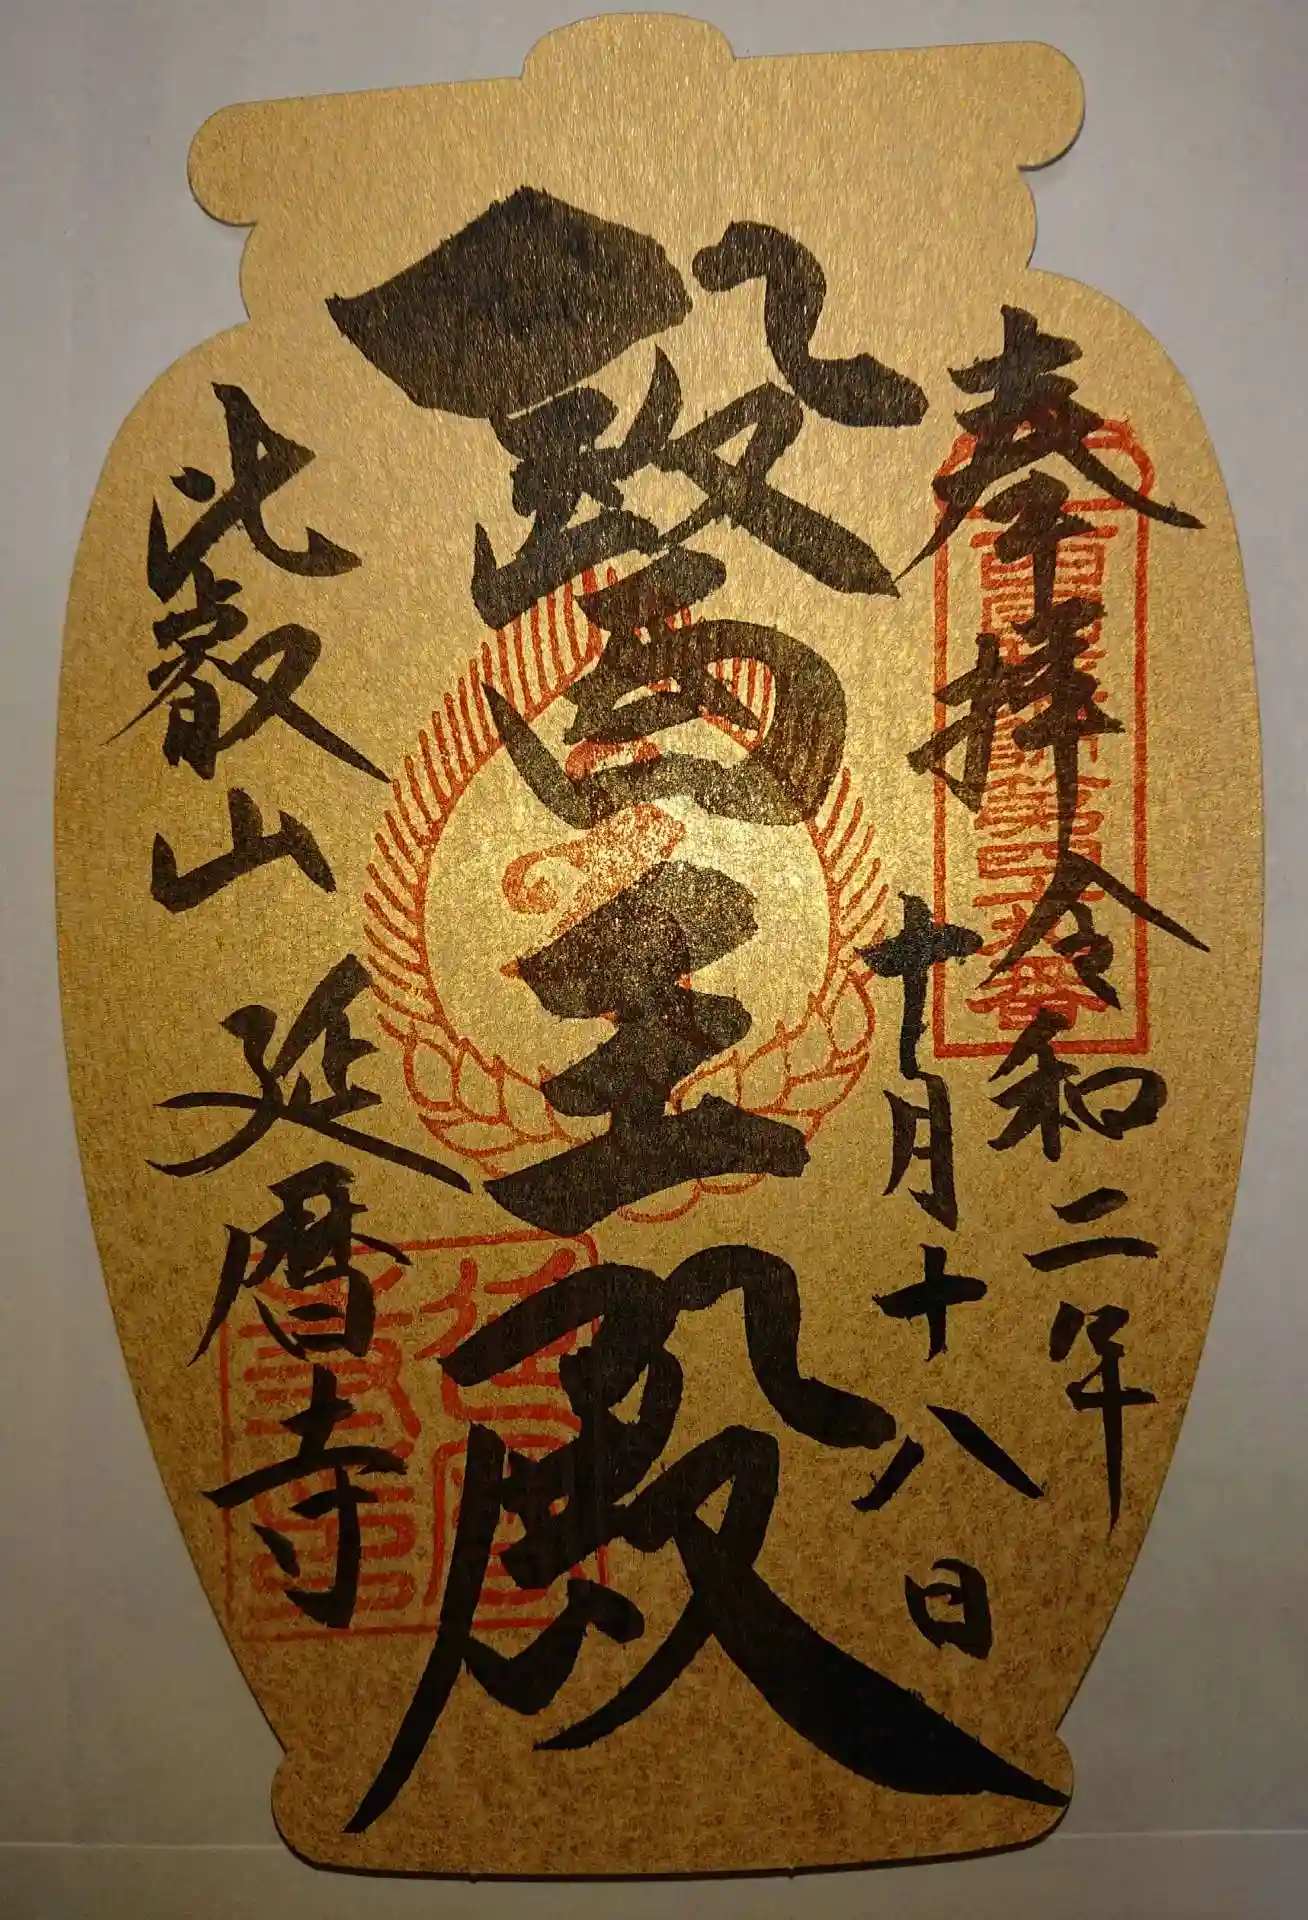 奉拝令和二年
十月十八日
醫王殿
比叡山延暦寺